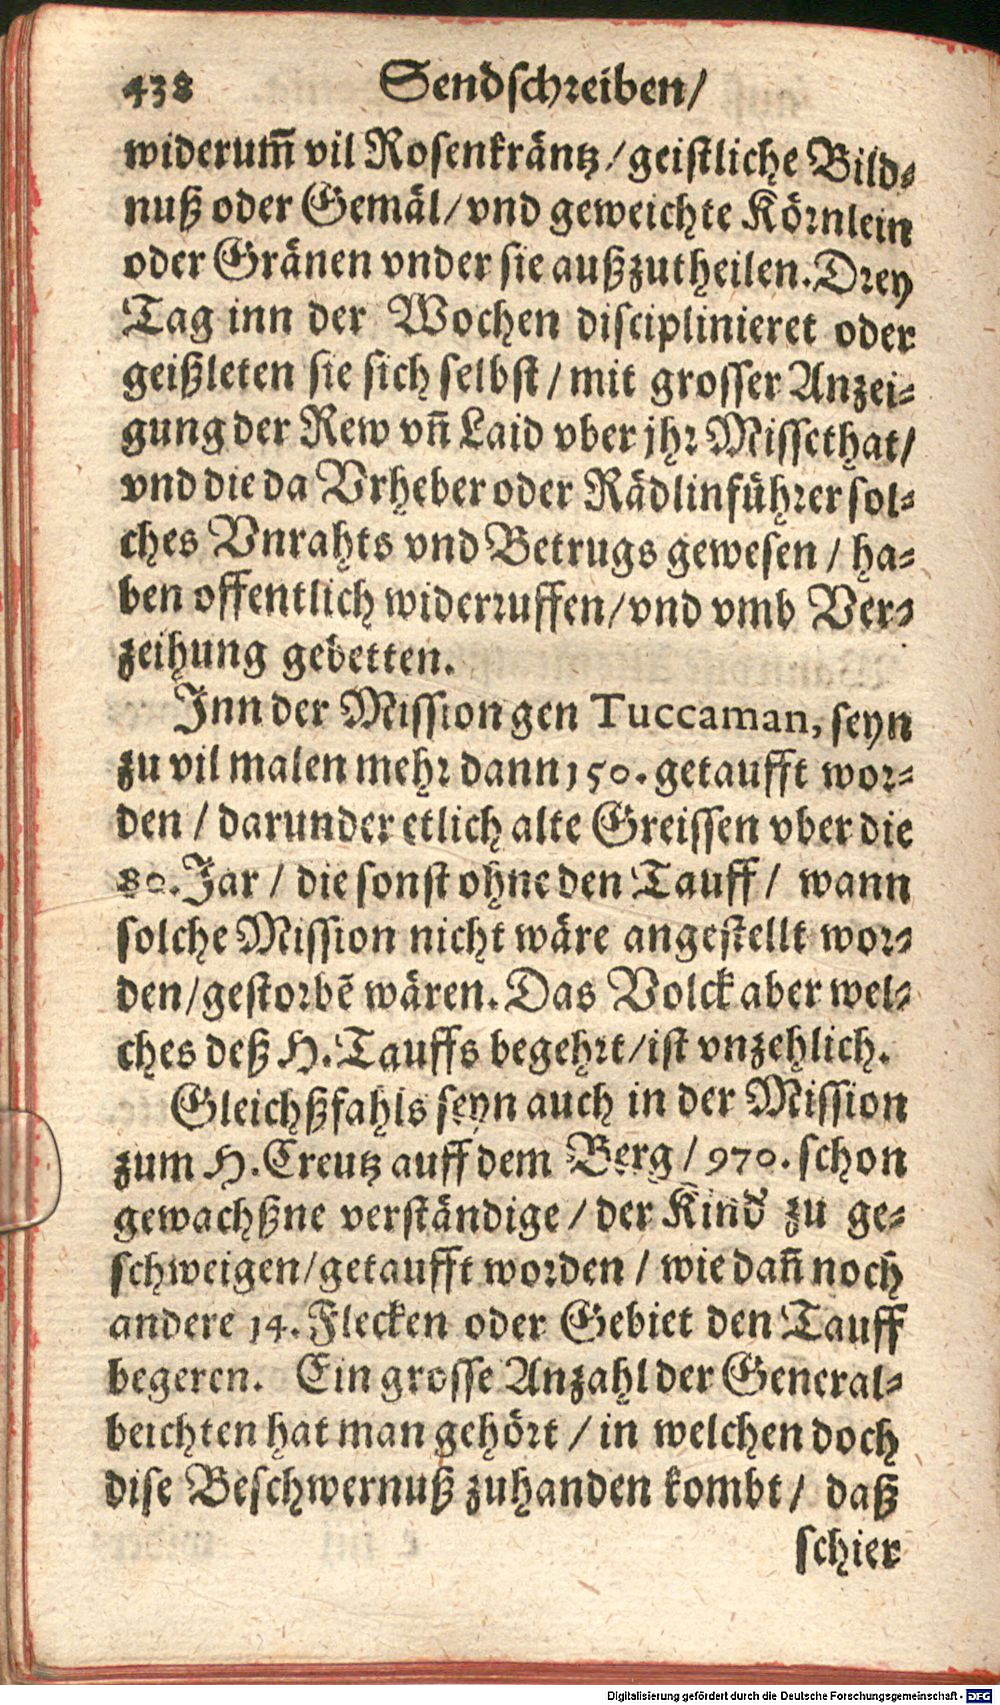 438 Sendschreiben/
widerum̃ vil Rosenkräntz/geistliche Bild-
nuß oder Gemäl/vnd geweichte Körnlein
oder Gränen vnder sie außzutheilen. Drey
Tag inn der Wochen disciplinieret oder
geißleten sie sich selbst/mit grosser Anzei-
gung der Rew vñ Laid vber jhr Missethat/
vnd die da Vrheber oder Rädlinführer sol-
ches Vnrahts vnd Betrugs gewesen/ha-
ben offentlich widerruffen/vnd vmb Ver-
zeihung gebetten.
Inn der Mission gen Tuccaman, seyn
zu vil malen mehr dann 150. getaufft wor-
den/darunder etlich alte Greissen vber die
80. Jar/die sonst ohne den Tauff/wann
solche Mission nicht wäre angestellt wor-
den/gestorbẽ wären. Das Volck aber wel-
ches deß H. Tauffs begehrt/ist vnzehlich.
Gleichßfahls seyn auch in der Mission
zum H. Creutz auff dem Berg/970. schon
gewachßne verständige/der Kind zu ge-
schweigen/getaufft worden/wie dañ noch
andere 14. Flecken oder Gebiet den Tauff
begeren. Ein grosse Anzahl der General-
beichten hat man gehört/in welchen doch
dise Beschwernuß zuhanden kombt/daß
schier
Digitalisierung gefördert durch die Deutsche Forschungsgemeinschaft - DFG